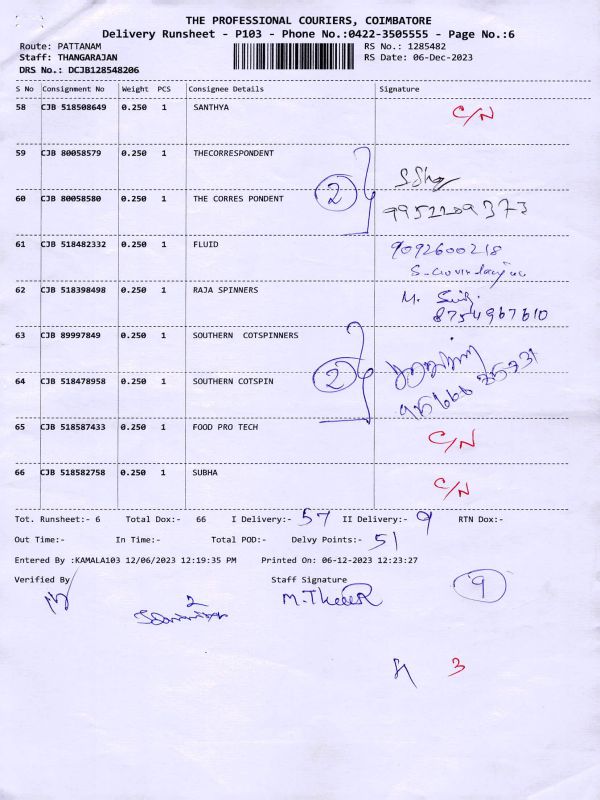 THE PROFESSIONAL COURIERS, COIMBATORE
Delivery Runsheet - P103 - Phone No.:0422-3505555 - Page No.:6
Route: PATTANAM RS No.: 1285482
Staff: THANGARAJAN RS Date: 06-Dec-2023
DRS No.: DCJB128548206
S No Consignment No Weight PCS Consignee Details Signature
58 CJB 518508649 0.250 1 SANTHYA C/N
59 CJB 80058579 0.250 1 THECORRESPONDENT
60 CJB 80058580 0.250 1 THE CORRES PONDENT 2 9952209373
61 CJB 518482332 0.250 1 FLUID 9092600218
62 CJB 518398498 0.250 1 RAJA SPINNERS M.
8754967610
63 CJB 89997849 0.250 1 SOUTHERN COTSPINNERS
64 CJB 518478958 0.250 1 SOUTHERN COTSPIN 2
65 CJB 518587433 0.250 1 FOOD PRO TECH C/N
66 CJB 518582758 0.250 1 SUBHA C/N
Tot. Runsheet:- 6 Total Dox:- 66 I Delivery:- 57 II Delivery:- 9 RTN Dox:-
Out Time:- In Time:- Total POD:- Delvy Points:- 51
Entered By :KAMALA103 12/06/2023 12:19:35 PM Printed On: 06-12-2023 12:23:27
Verified By Staff Signature 9
2
3